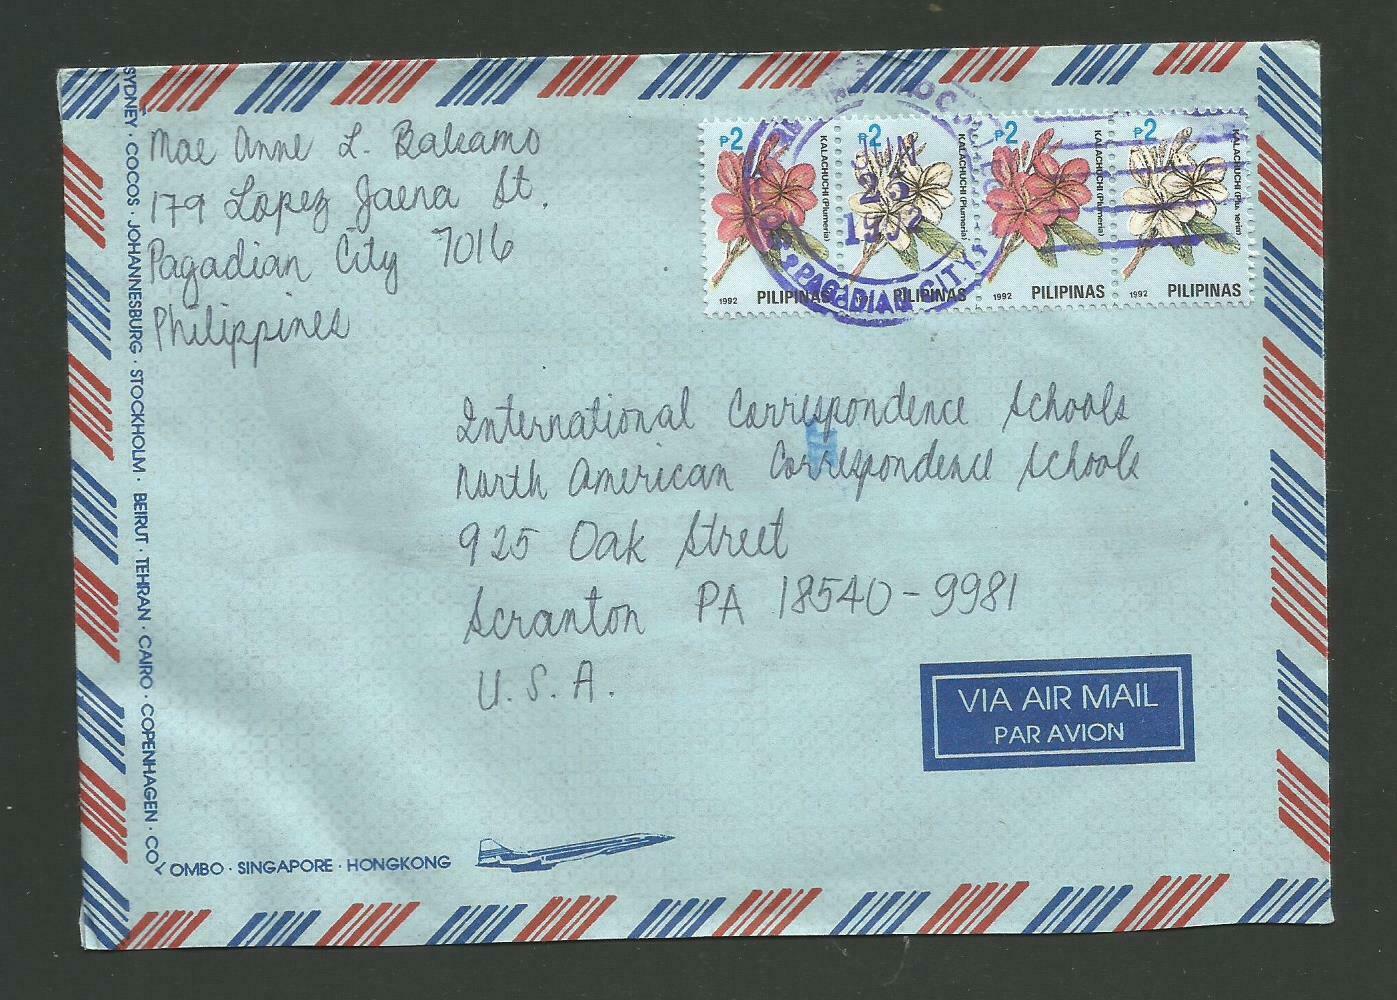 Mae Anne L. Balcamo
179 Lopez Jaena St.
Pagadian City 7016
Philippines
₱2 KALACHUCHI (Plumeria) 1992 PILIPINAS
₱2 KALACHUCHI (Plumeria) PILIPINAS
₱2 1992 PILIPINAS
₱2 KALACHUCHI (Plumeria) 1992 PILIPINAS
JUN
1992
PAGADIAN CIT
International Correspondence Schools
North American Correspondence Schools
925 Oak Street
Scranton PA 18540-9981
U.S.A.
VIA AIR MAIL
PAR AVION
SYDNEY · COCOS · JOHANNESBURG · STOCKHOLM · BEIRUT · TEHRAN · CAIRO · COPENHAGEN · COLOMBO · SINGAPORE · HONGKONG